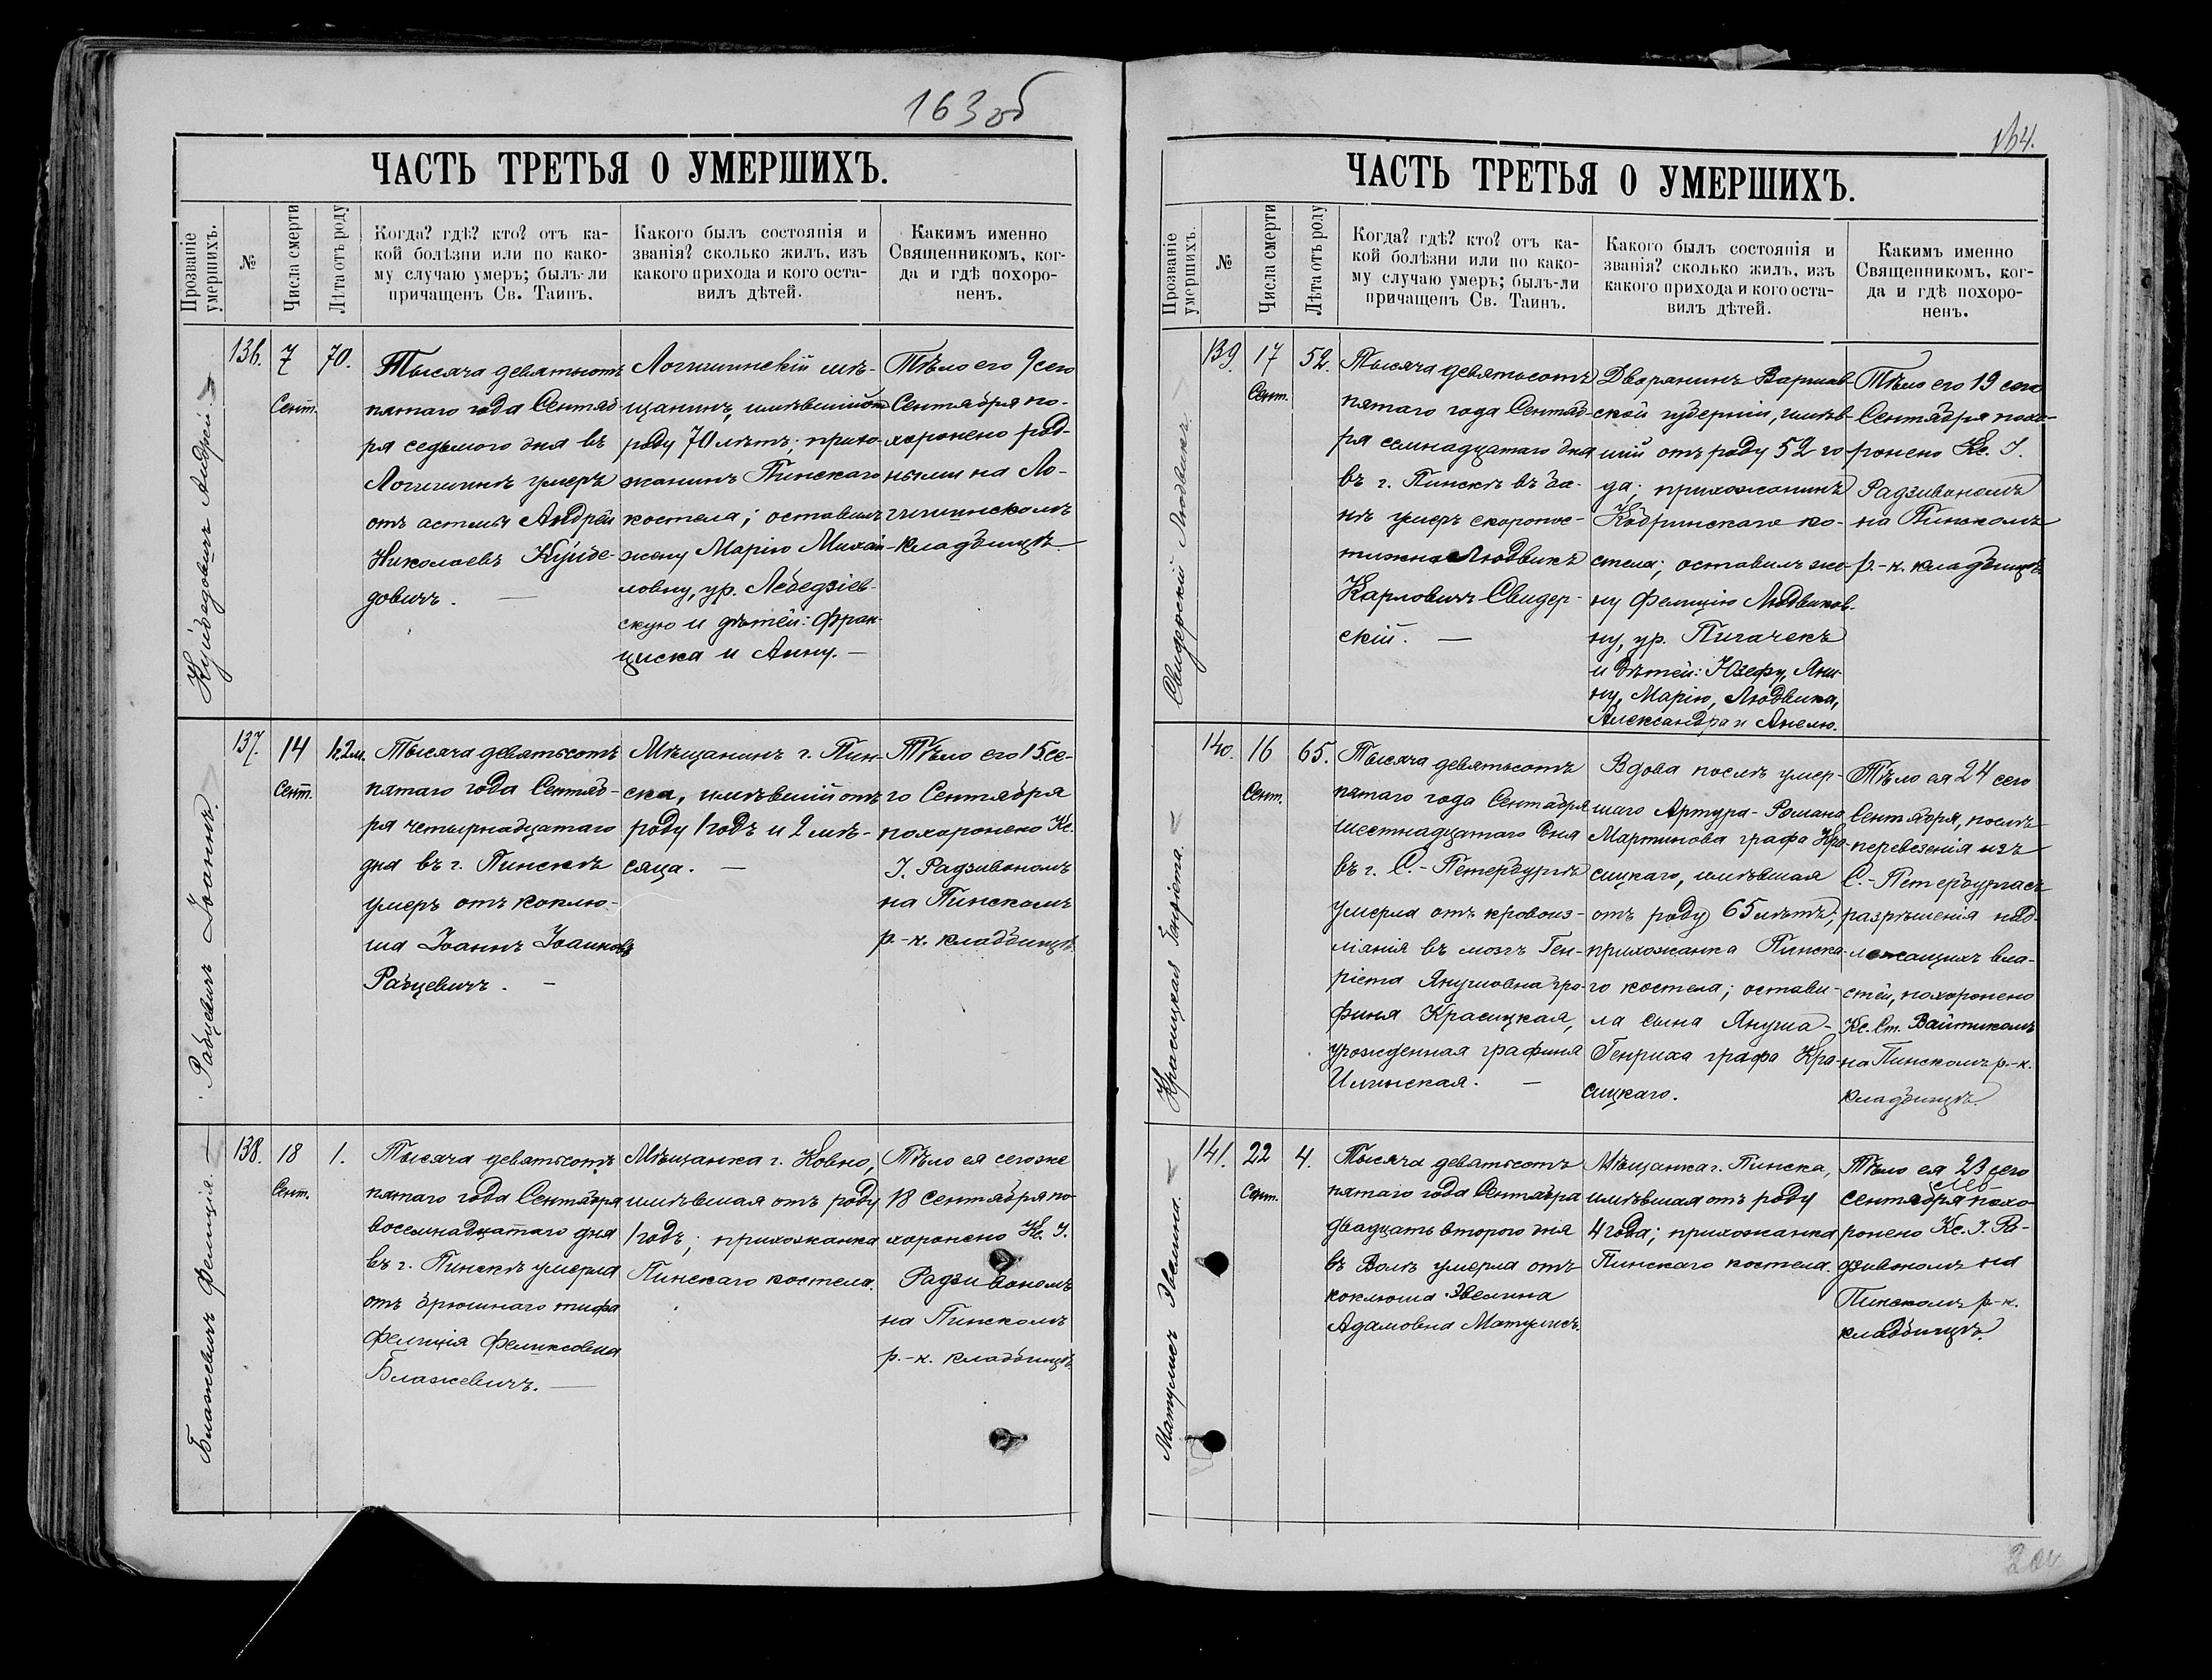 163 об
ЧАСТЬ ТРЕТЬЯ О УМЕРШИХЪ.
Прозваніе умершихъ.
№
Числа смерти
Лѣта отъ роду
Когда? гдѣ? кто? отъ ка-
кой болѣзни или по како-
му случаю умеръ; былъ-ли
причащенъ Св. Таинъ.
Какого былъ состоянія и
званія? сколько жилъ, изъ
какого прихода и кого оста-
вилъ дѣтей.
Какимъ именно
Священникомъ, ког-
да и гдѣ похоро-
ненъ.
Куйдовичъ Андрей.
136.
7
Сент.
70.
Тысяча девятьсотъ
пятаго года Сентяб
ря седьмого дня въ
Логишинѣ умеръ
отъ астмы Андрей
Николаевъ Куйде-
довичъ. —
Логишинскій мѣ-
щанинъ, имѣвшій отъ
роду 70 лѣтъ; прихо-
жанинъ Пинскаго
костела; оставилъ
жену Марію Михай
ловну, ур. Лебедзіев-
скую и дѣтей: Фран-
циска и Анну. —
Тѣло его 9 сего
Сентября по-
хоронено род-
ными на Ло-
гишинскомъ
кладбищѣ.
Рабцевичъ Іоаннъ.
137.
14
Сент.
1г. 2м.
Тысяча девятьсотъ
пятаго года Сентяб-
ря четырнадцатаго
дня въ г. Пинскѣ
умеръ отъ коклю-
ша Іоаннъ Іоанновъ
Рабцевичъ. —
Мѣщанинъ г. Пин-
ска, имѣвшій отъ
роду 1 годъ и 2 мѣ-
сяца. —
Тѣло его 15 се-
го Сентября
похоронено Кс.
І. Радзивономъ
на Пинскомъ
р.-к. кладбищѣ.
Блажевичъ Фелиція. —
138.
18
Сент.
1.
Тысяча девятьсотъ
пятаго года Сентября
восемнадцатаго дня
въ г. Пинскѣ умерла
отъ брюшнаго тифа
Фелиція Феликсовна
Блажевичъ. —
Мѣщанка г. Ковно,
имѣвшая отъ роду
1 годъ; прихожанка
Пинскаго костела.
Тѣло ея сегоже
18 сентября по-
хоронено Кс. І.
Радзивономъ
на Пинскомъ
р.-к. кладбищѣ.
164.
ЧАСТЬ ТРЕТЬЯ О УМЕРШИХЪ.
Прозваніе умершихъ.
№
Числа смерти
Лѣта отъ роду
Когда? гдѣ? кто? отъ ка-
кой болѣзни или по како-
му случаю умеръ; былъ-ли
причащенъ Св. Таинъ.
Какого былъ состоянія и
званія? сколько жилъ, изъ
какого прихода и кого оста-
вилъ дѣтей.
Какимъ именно
Священникомъ, ког-
да и гдѣ похоро-
ненъ.
Свидерскій Людвикъ. —
139.
17
Сент.
52.
Тысяча девятьсотъ
пятаго года Сентяб-
ря семнадцатаго дня
въ г. Пинскѣ въ ба-
нѣ умеръ скоропос-
тижно Людвикъ
Карловичъ Свидер-
скій. —
Дворянинъ Варшав-
ской губерніи, имѣв-
шій отъ роду 52 го
да; прихожанинъ
Кобринскаго ко-
стела; оставилъ же-
ну Фелицію Людвиков-
ну, ур. Пигачекъ
и дѣтей: Юзефу, Яни-
ну, Марію, Людвика,
Александра и Анелю.
Тѣло его 19 сего
Сентября похо-
ронено Кс. І.
Радзивономъ
на Пинскомъ
р.-к. кладбищѣ.
Красицкая Генріета. —
140.
16
Сент.
65.
Тысяча девятьсотъ
пятаго года Сентября
шестнадцатаго дня
въ г. С.-Петербургѣ
умерла отъ кровоиз-
ліянія въ мозгъ Ген-
ріета Янушовна гра-
финя Красицкая,
урожденная графиня
Илинская. —
Вдова послѣ умер-
шаго Артура-Романа
Мартинова графа Кра-
сицкаго, имѣвшая
отъ роду 65 лѣтъ;
прихожанка Пинска-
го костела; остави-
ла сына Януша-
Генриха графа Кра-
сицкаго.
Тѣло ея 24 сего
Сентября, послѣ
перевезенія изъ
С.-Петербурга съ
разрѣшенія над-
лежащихъ вла-
стей, похоронено
Кс. Ст. Войтикомъ
на Пинскомъ р.-к.
кладбищѣ.
Матулисъ Эвелина. —
141.
22
Сент.
4.
Тысяча девятьсотъ
пятаго года Сентября
двадцать второго дня
въ Волѣ умерла отъ
коклюша Эвелина
Адамовна Матулисъ.
Мѣщанка г. Пинска,
имѣвшая отъ роду
4 года; прихожанка
Пинскаго костела.
Тѣло ея 23 сего
сентября похо-
ронено Кс. І. Ра-
дзивономъ на
Пинскомъ р.-к.
кладбищѣ.